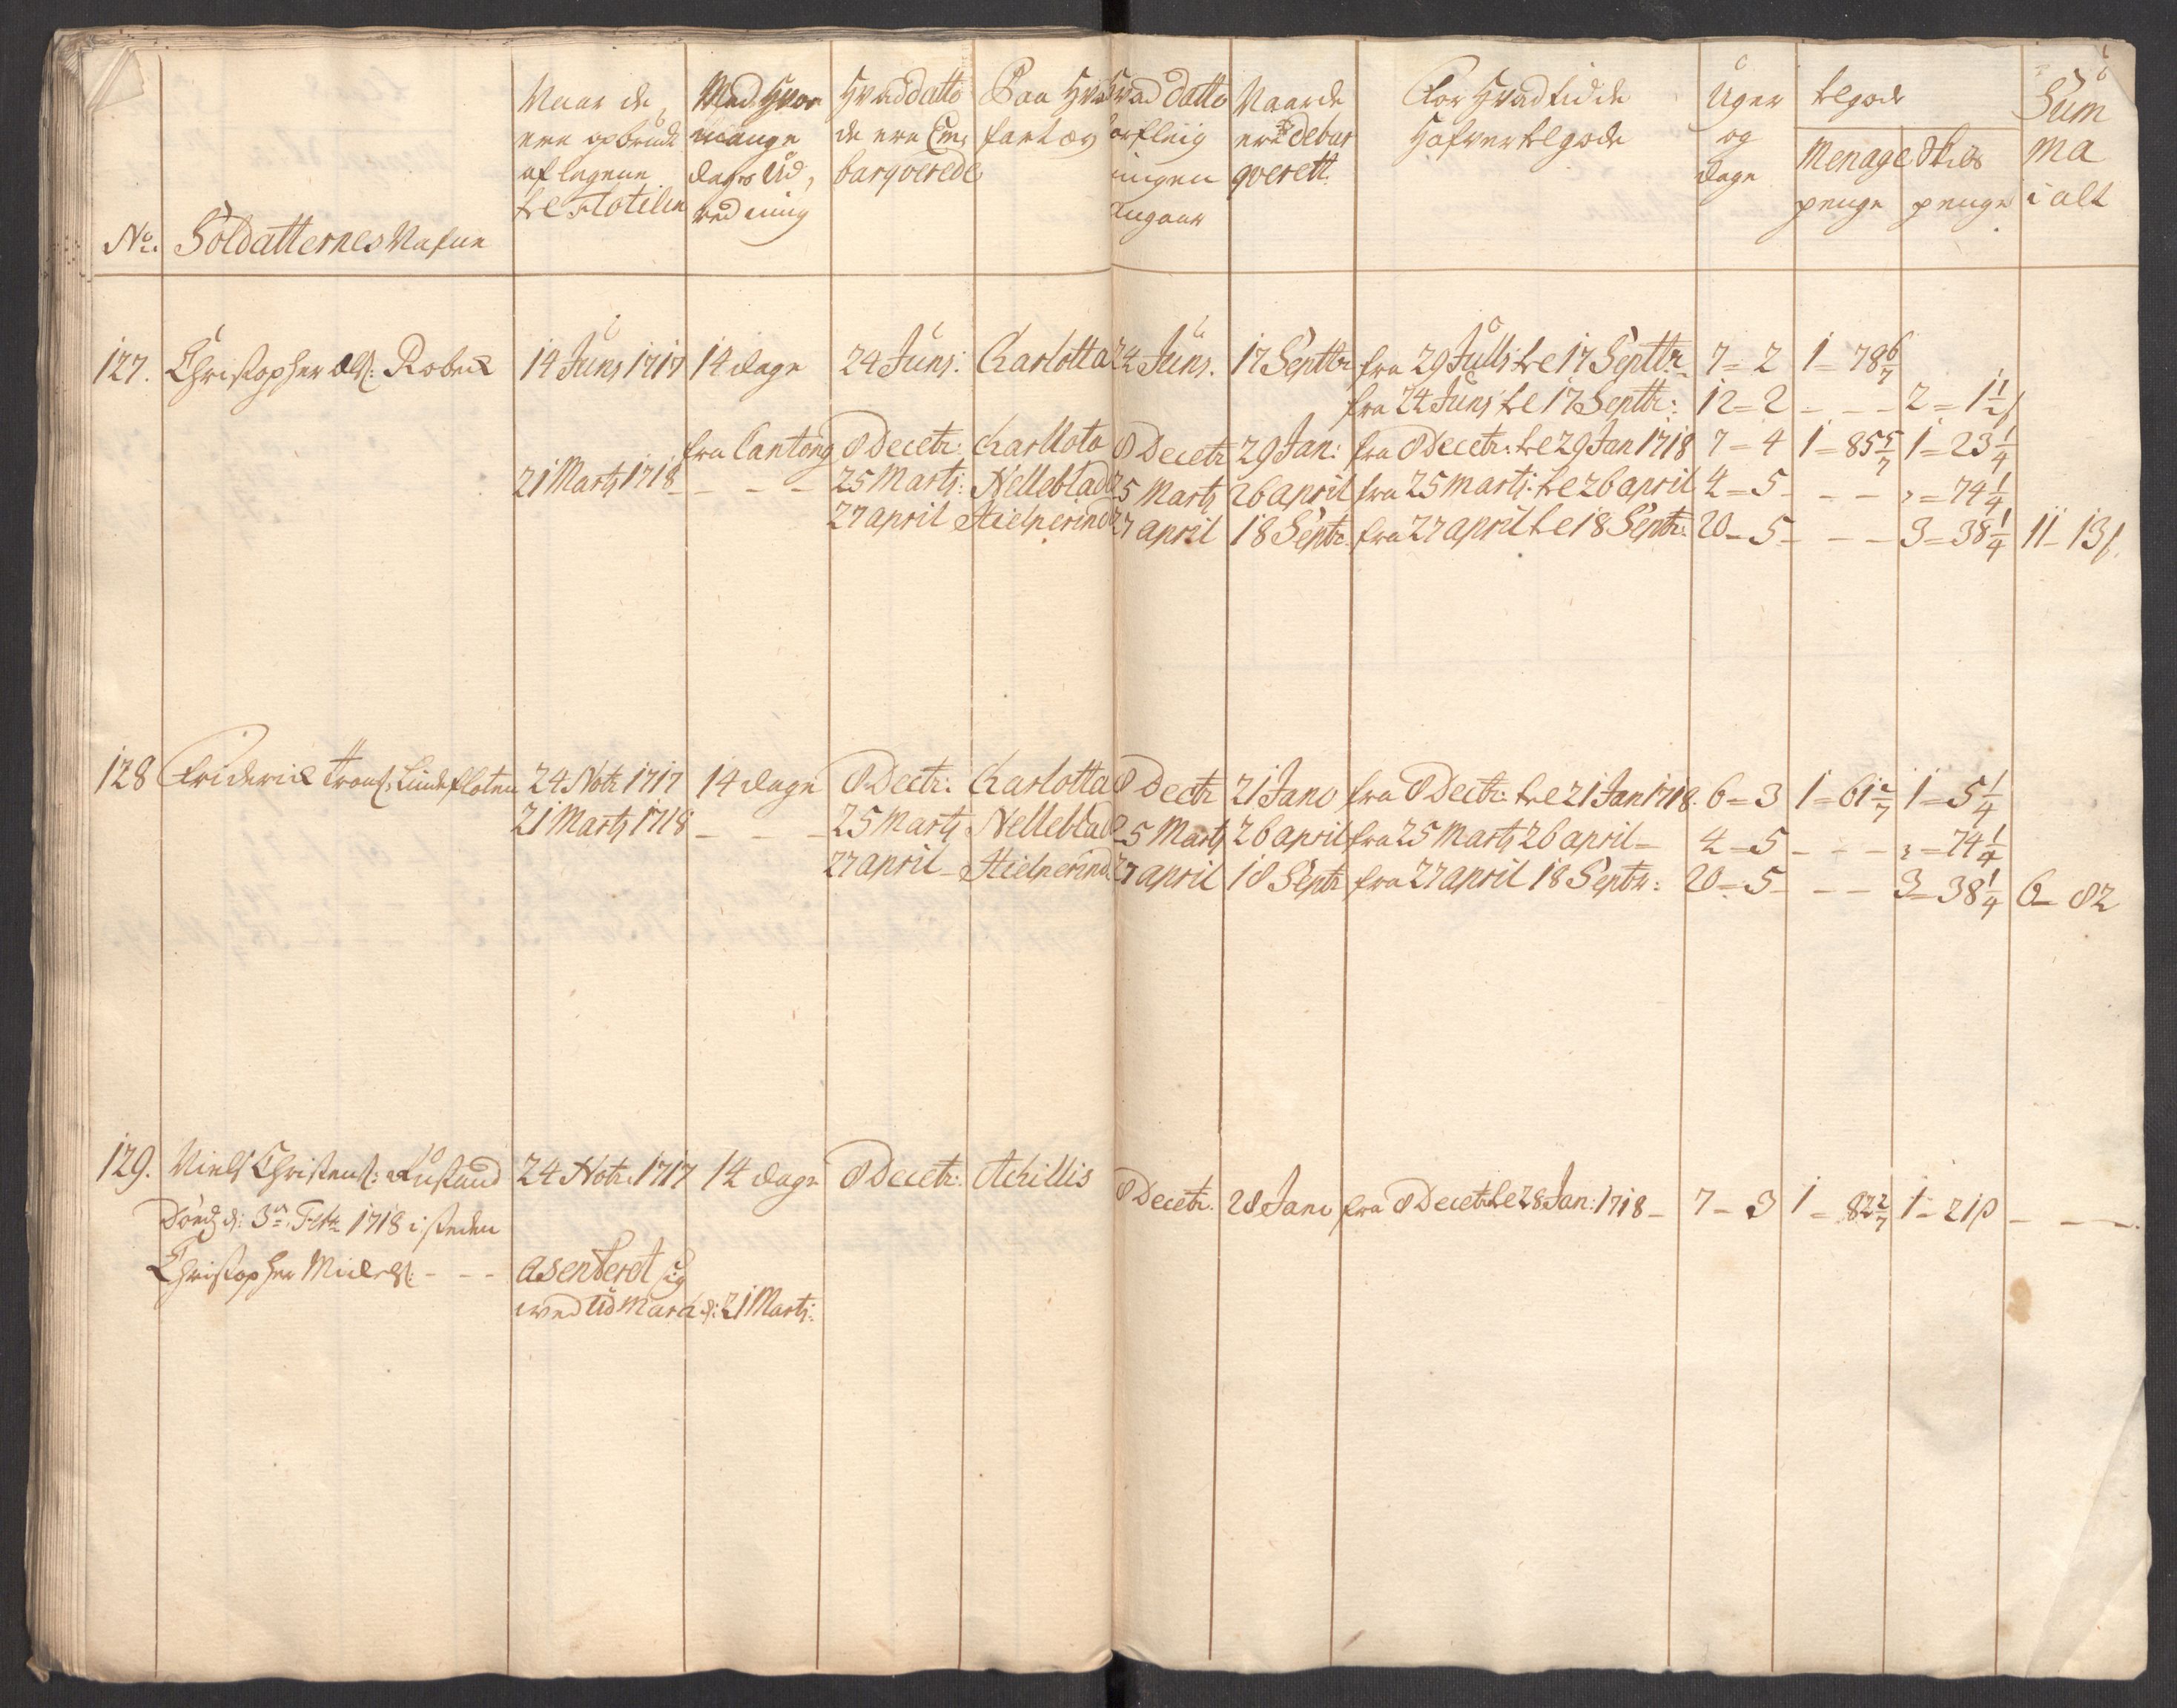 No: Soldatternes Nafne
Naar de ere opbrudt af legene til Flotilien
Med Hvor mange dages Ud, redning
Hvad datto de ere Em, barqverede
Paa Hvad fartøy
Hvad datto forfleig ningen angaar
Naar de ere debar qverett
For Hvad tid de Hafver tilgode
Uger og dage
tilgode
Menage penge
Skibs penge
Sum ma i alt
127. Christopher Ols: 14 Junj 1717 14 dage 24 Junj: Charlotta 24 Junj. 17 Septbr fra 29 Julli til 17 Septbr. 7 = 2 1 = 78 6/7
fra 24 Junj til 17 Septbr: 12 = 2 - - - 2 = 1 1/2 ß
fra 8 Decetr: Charllota 8 Decetr 29 Jan: fra 8 Decetr: til 29 Jan 1718 7 = 4 1 = 85 5/7 1 = 23 1/4
21 Martj 1718 - - - 25 Martj: Nelleblad 25 Martj 26 april fra 25 martj: til 26 april 4 = 5 - - - " = 74 1/4
27 april Hielperind 27 april 18 Septr. fra 27 april til 18 Septr: 20 - 5 - - - 3 = 38 1/4 11 - 13 ß
128 Friderick 24 Notr 1717 14 dage 8 Dectr: Charlotta 8 Dectr 21 Jan fra 8 Dectr: til 21 Jan 1718. 6 = 3 1 = 61 2/7 1 = 5 1/4
21 Martj 1718 - - - 25 Martj Nelleblad 25 Martj 26 april fra 25 Martj 26 april - 4 - 5 - - - " = 74 1/4
27 april - Hielperind. 27 april 18 Septr fra 27 april 18 Septr: 20 - 5 - - - 3 - 38 1/4 6 - 82
129. Niels Christens: 24 Notr: 1717 14 dage 8 Decetr: Achillis 8 Decetr. 28 Jan fra 8 Decetr til 28 Jan: 1718 - 7 - 3 1 - 82 2/7 1 - 21 ß - - -
Død d: 3de Febr 1718 i steden
Christopher Niels: - - - asenteret sig
ved ud March d: 21 Martj: